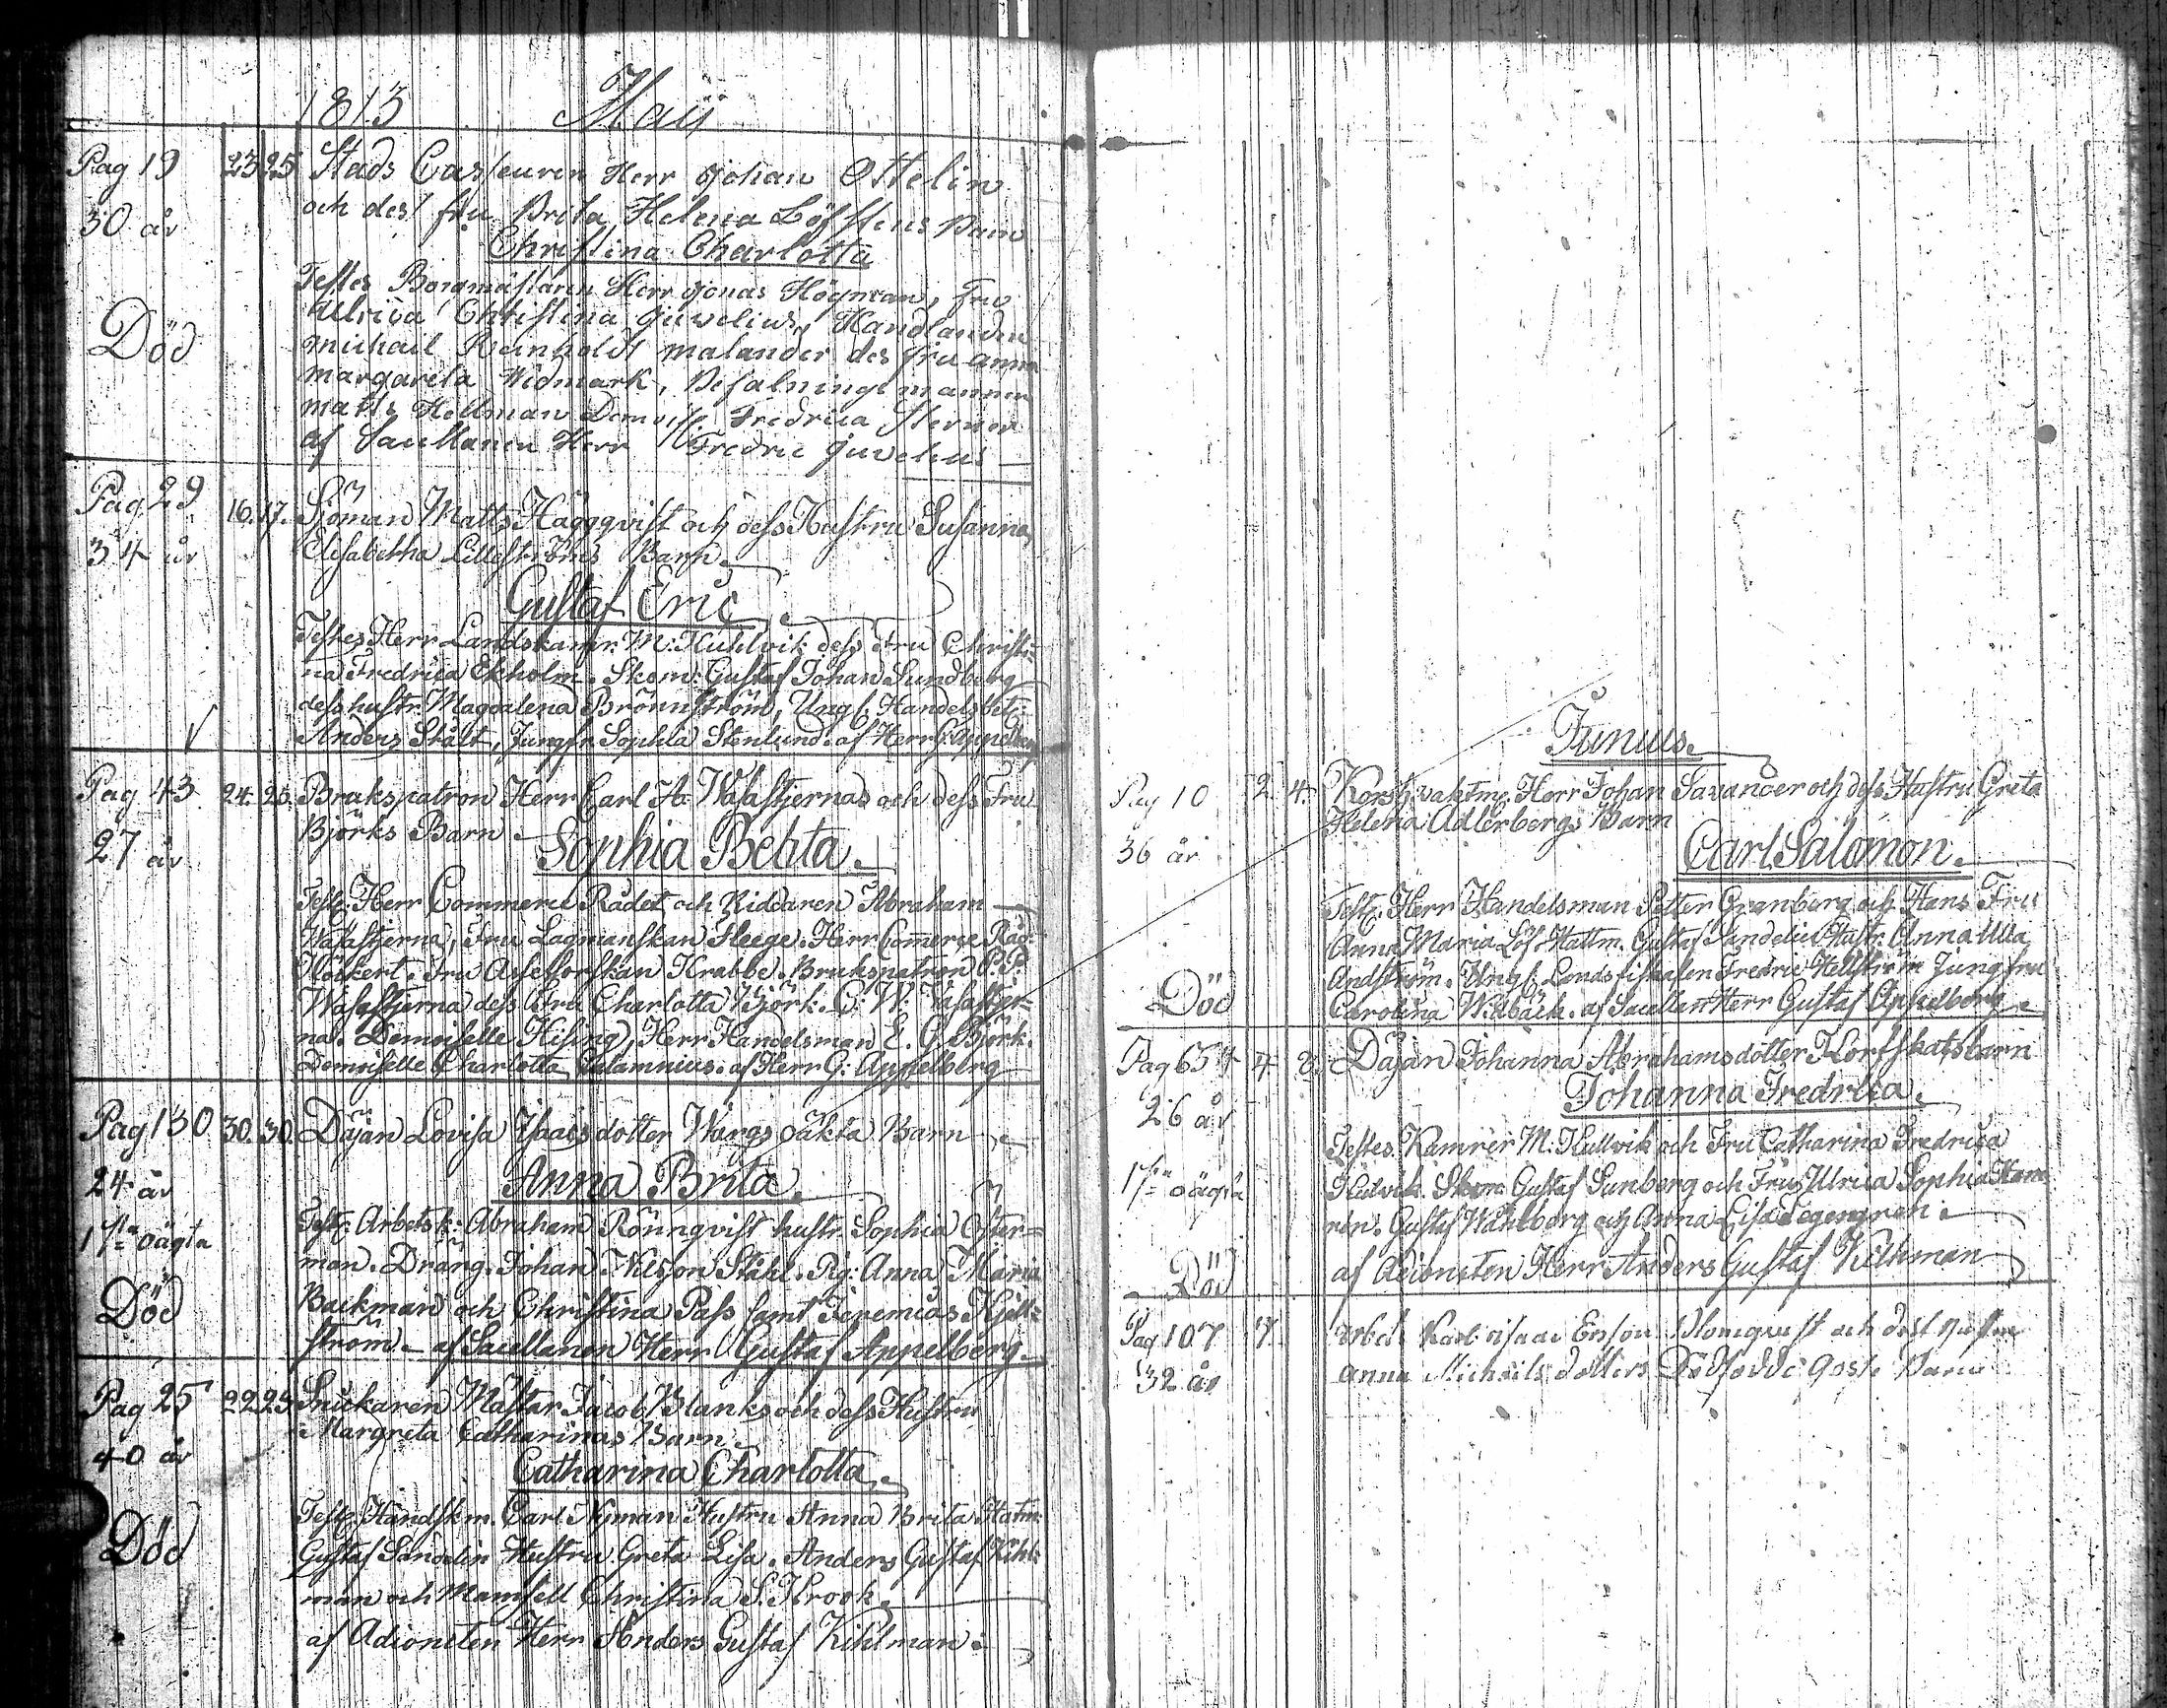 1813 Maij
Pag 19 23 25 Stads Casseuren Herr Johan Ottelin
30 år och dess fru Brita Helena Löfstens Barn
Christina Charlotta
Testes Borgmästaren Herr Jonas Högman, Fru
Ulrica Christina Juvelius, Handlanden
Död Michael Reinholdt Malander des fru Anna
Margareta Widmark, Befalningsmannen
Matts Hellman Demoiss. Fredrica Sterner
af Sacellanen Herr Fredric Juvelius
Pag 29 16. 17. Sjöman Matts Häggqvist och dess Hustru Susanna
34 år Elisabetha Lilleströms Barn
Gustaf Eric
Testes Herr Landskamr. M: Kuhlvik dess Fru Christi=
na Fredrica Ekholm. Skom: Gustaf Johan Sundberg
dess hustr. Magdalena Brönnström, Ungk. Handelsbet:
Anders Stålt, Jungfr. Sophia Stenlund. af Herr G: Appelberg
Pag 43 24. 25. Brukspatron Herr Carl A. Wasastjernas och dess Fru
27 år Björks Barn
Sophia Bebta.
Test: Herr Commerce Rådet och Riddaren Abraham
Wasastjerna, Fru Lagmanskan Heege. Herr Commerce Råd:
Höckert. Fru Assessorskan Krabbe. Brukspatron P. P.
Wasastjerna dess Fru Charlotta Björk. C: W: Wasastjer=
na. Demoiselle Hising, Herr Handelsman E. G. Björk.
Demoiselle Charlotta Calamnius. af Herr G: Appelberg
Pag 130 30. 30. Däjan Lovisa Isaacsdotter Wargs oäkta Barn
24 år Anna Brita.
1sta oägta Test: Arbetsk: Abraham Rönnqvist hustr. Sophia Öster=
man. Dräng. Johan Nilsson Ståhl. Pig: Anna Maria
Död Backman och Christina Pass samt Jeremias Kjell=
ström. af Sacellanen Herr Gustaf Appelberg.
Pag 25 22. 23. Snickaren Mästar Jacob Blanks och dess Hustru
40 år Margreta Catharinas Barn
Catharina Charlotta.
Test: Handskm. Carl Nyman Hustru Anna Brita Hatm:
Död Gustaf Sandelin Hustru Greta Lisa. Anders Gustaf Kihl=
man och Mamsell Christina S. Krook.
af Adioncten Herr Anders Gustaf Kihlman.
Junius.
Pag 10 2. 4. Herr Johan Savander och dess Hustru Greta
36 år Helena Adlerbergs Barn
Carl Salomon.
Test: Herr Handelsman Petter Granberg och Hans Fru
Anna Maria Löf. Hattm. Gustaf Sandelin Hustr. Anna Ulla
Andström. Ungk. Landsfiskalen Fredric Hellström Jungfru
Död Carolina Widbäck. af Sacellan Herr Gustaf Appelberg
Pag 654 4 8. Däjan Johanna Abrahamsdotter Korfskatsbarn
26 år Johanna Fredrica.
Testes. Kamrer M. Kullvik och Fru Catharina Fredrica
1sta oägta Kulvik. Skom. Gustaf Sunberg och Fru Ulrica Sophia
Gustaf Wahlborg och Anna Lisa Segengren.
Död af Adioncten Herr Anders Gustaf Kihlman
Pag 107 7. Arbets Karl Isaac Ersson Blomqvist och dess Hustru
32 år Anna Michels dotters Dödfödde Gosse Barn